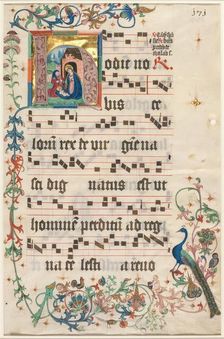 Hodie no
bis ce
lorū rex de vir gine na
sci dig natus est ut
hominē perditū ad reg
na ce lesti a reuo